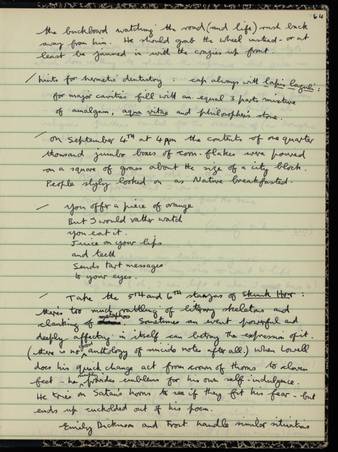 64
the buckboard watching the road (and life) rush back
away from him. He should grab the wheel instead - or at
least be jammed in with the crazies up front.
/ hints for hermetic dentistry : cap always with lapis lazuli :
for major cavities fill with an equal 3 parts mixture
of amalgam, aqua vitae and philosopher's stone.
/ On September 4th at 4pm the contents of one quarter
thousand jumbo boxes of corn-flakes were poured
on a square of grass about the size of a city block.
People slyly looked on as Native breakfasted.
/ You offer a piece of orange
But I would rather watch
you eat it.
Juice on your lips
and teeth
Sends tart messages
to your eyes.
/ Take the 5th and 6th stanzas of Skunk Hour :
there's too much rattling of literary skeletons and
clanking of Sometimes an event powerful and
deeply affecting in itself can betray the expression of it.
(there is no anthology of suicide notes after all.) When Lowell
does his quick change act from crown of thorns to cloven
feet - he parades emblems for his own self indulgence.
He tries on Satan's horns to see if they fit his fear - but
ends up cuckolded out of his poem.
Emily Dickinson and Frost handle similar situations